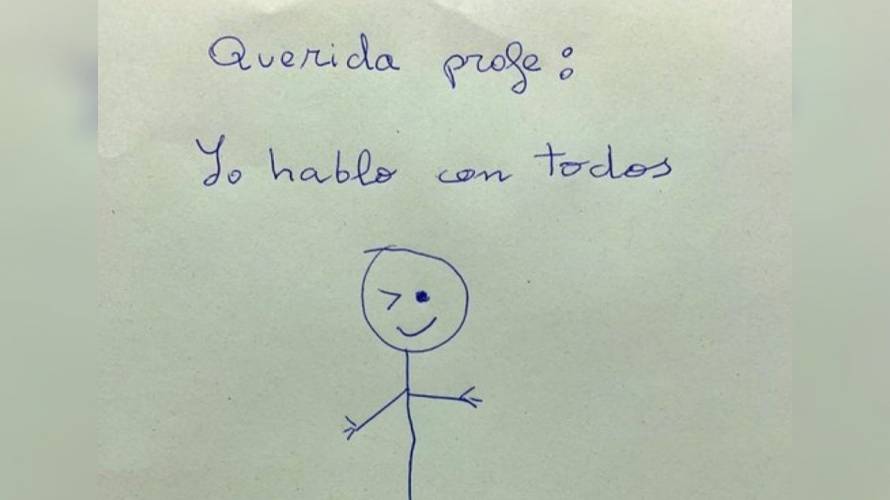 Querida profe:
Yo hablo con todos